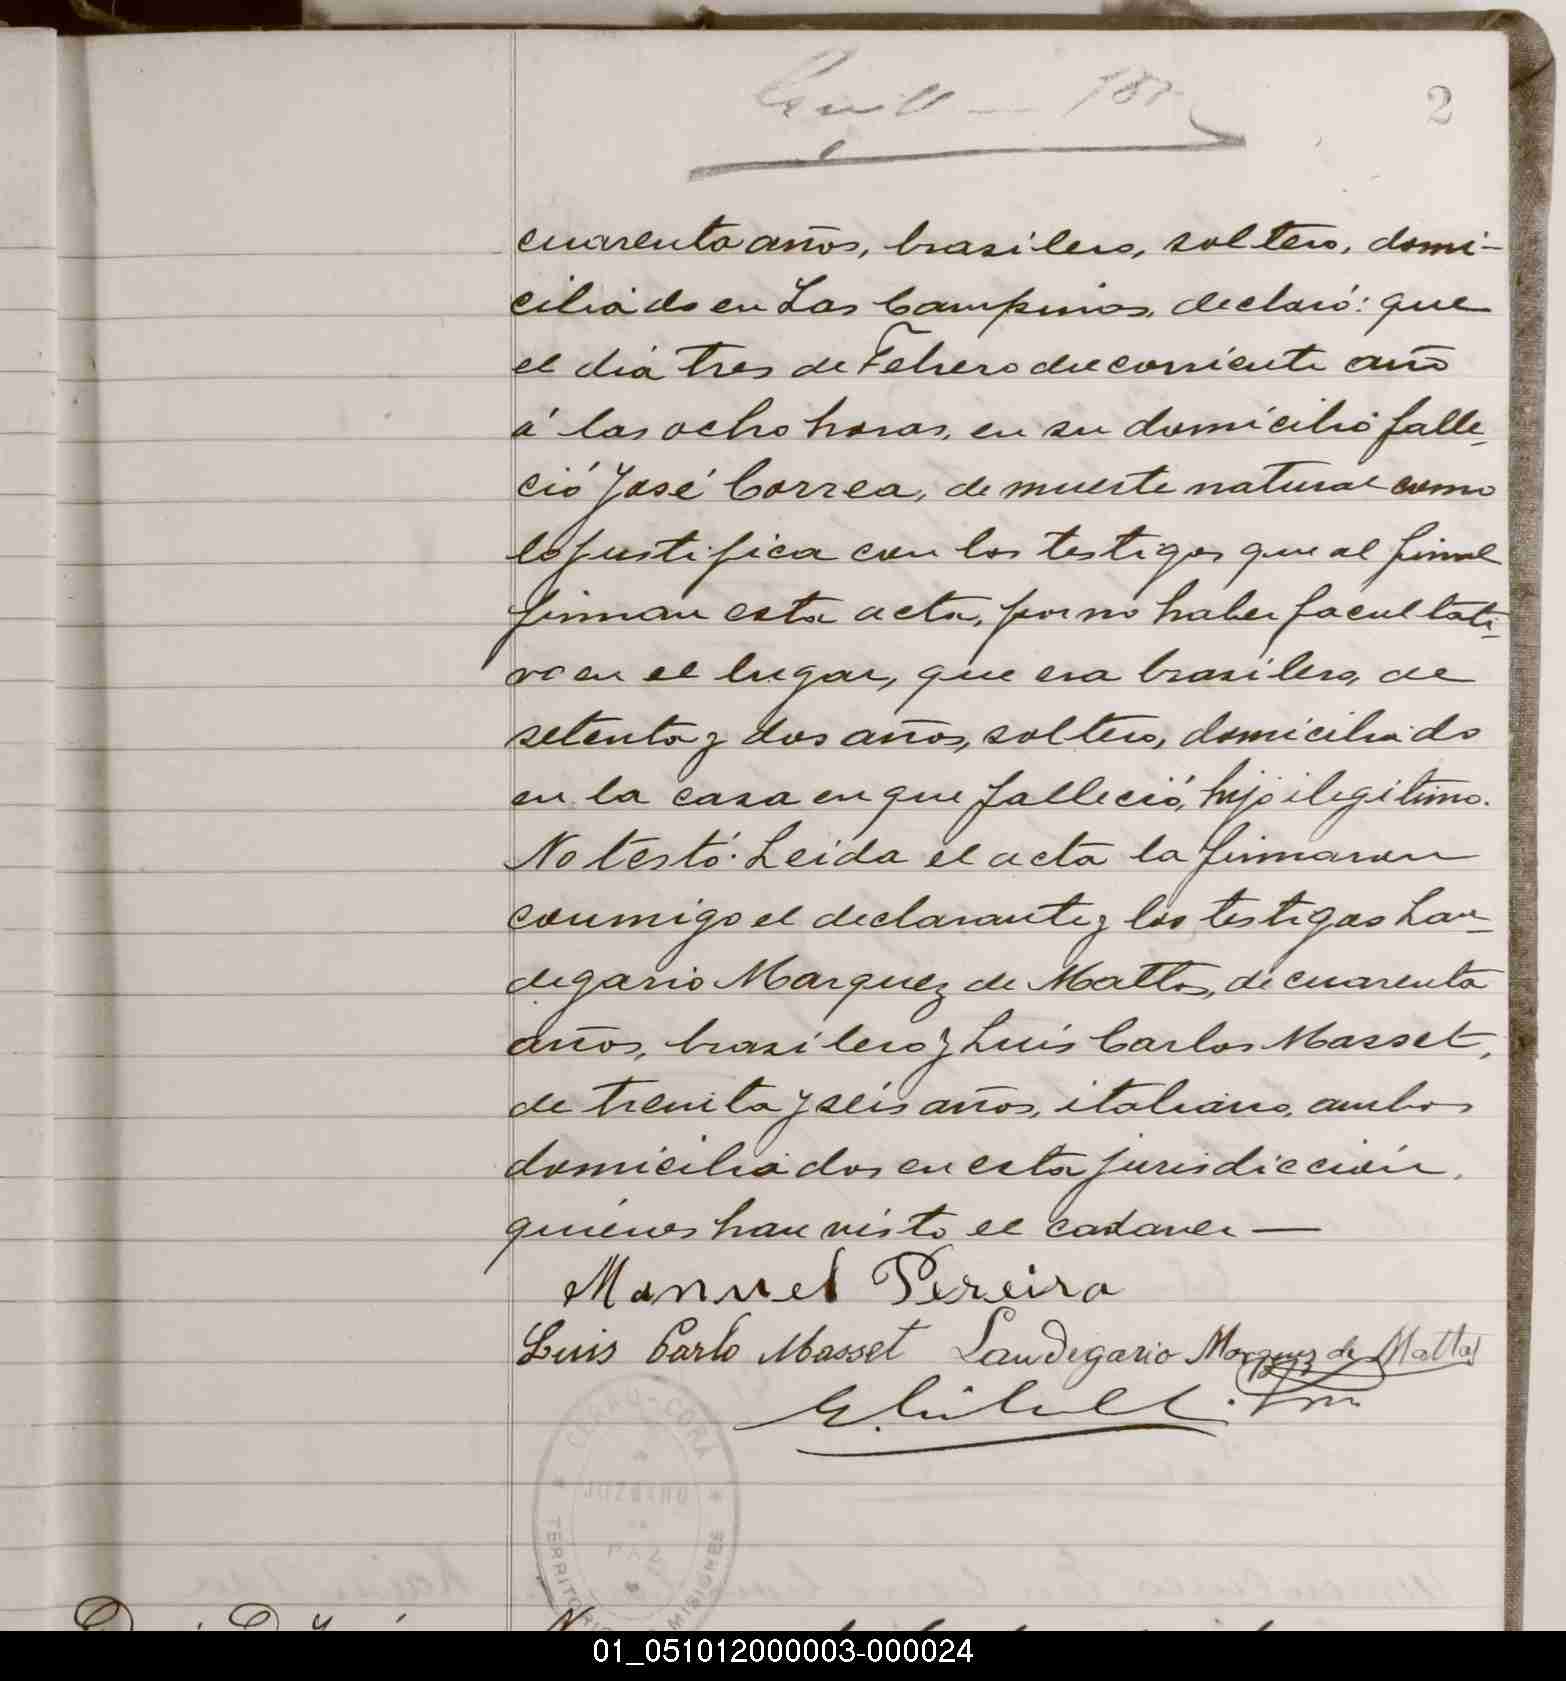 2
cuarenta años, brasilero, soltero, domi-
ciliado en Las Campinas, declaró: que
el dia tres de Febrero del corriente año
á las ocho horas, en su domicilio falle-
ció José Correa, de muerte natural como
lo justifica con los testigos que al final
firman esta acta, por no haber facultati-
vo en el lugar, que era brasilero, de
setenta y dos años, soltero, domiciliado
en la casa en que falleció, hijo ilegitimo.
No testó. Leida el acta la firmaron
conmigo el declarante y los testigos Lau-
degario Marquez de Mattos, de cuarenta
años, brasilero y Luis Carlos Masset,
de treinta y seis años, italiano, ambos
domiciliados en esta jurisdiccion,
quiénes han visto el cadaver —
Manuel Pereira
Luis Carlo Masset Laudegario Marquez de Mattos
CERRO-CORÁ
JUZGADO
DE
PAZ
TERRITORIO MISIONES
01_051012000003-000024